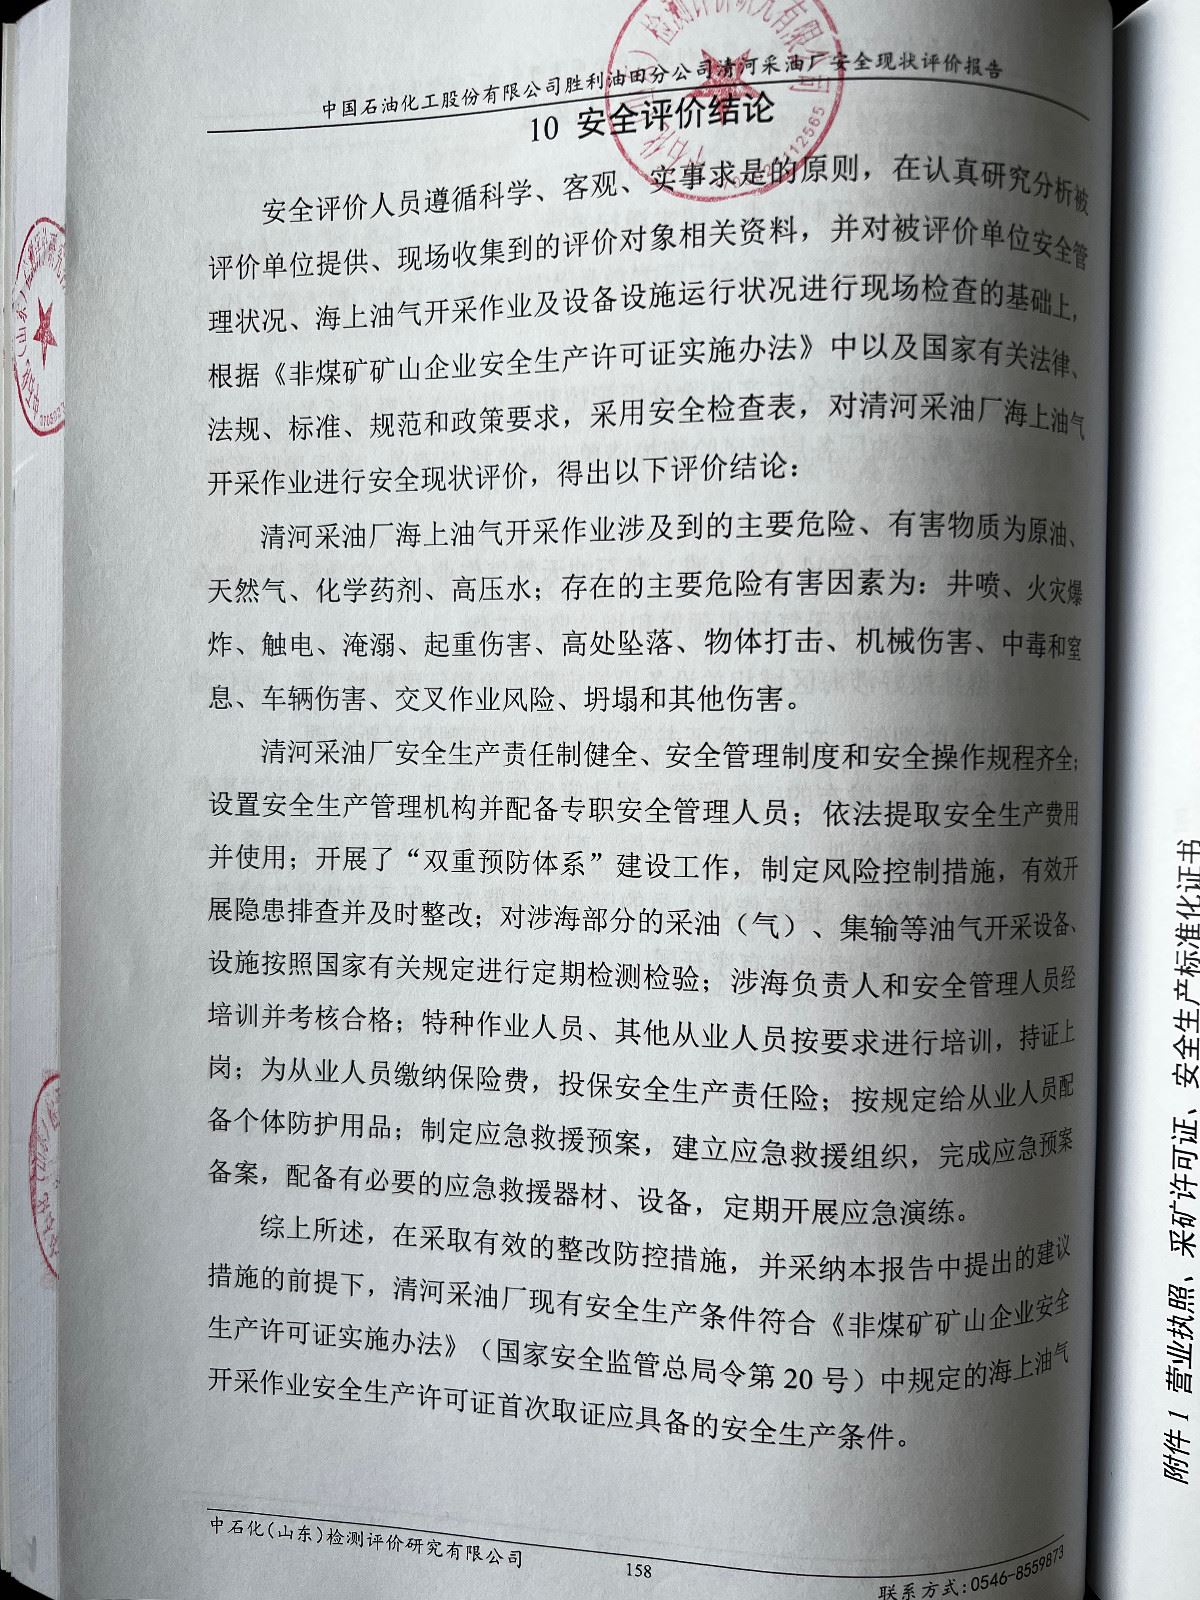 中国石油化工股份有限公司胜利油田分公司清河采油厂安全现状评价报告
10 安全评价结论
安全评价人员遵循科学、客观、实事求是的原则，在认真研究分析被
评价单位提供、现场收集到的评价对象相关资料，并对被评价单位安全管
理状况、海上油气开采作业及设备设施运行状况进行现场检查的基础上，
根据《非煤矿矿山企业安全生产许可证实施办法》中以及国家有关法律、
法规、标准、规范和政策要求，采用安全检查表，对清河采油厂海上油气
开采作业进行安全现状评价，得出以下评价结论：
清河采油厂海上油气开采作业涉及到的主要危险、有害物质为原油、
天然气、化学药剂、高压水；存在的主要危险有害因素为：井喷、火灾爆
炸、触电、淹溺、起重伤害、高处坠落、物体打击、机械伤害、中毒和窒
息、车辆伤害、交叉作业风险、坍塌和其他伤害。
清河采油厂安全生产责任制健全、安全管理制度和安全操作规程齐全；
设置安全生产管理机构并配备专职安全管理人员；依法提取安全生产费用
并使用；开展了“双重预防体系”建设工作，制定风险控制措施，有效开
展隐患排查并及时整改；对涉海部分的采油（气）、集输等油气开采设备、
设施按照国家有关规定进行定期检测检验；涉海负责人和安全管理人员经
培训并考核合格；特种作业人员、其他从业人员按要求进行培训，持证上
岗；为从业人员缴纳保险费，投保安全生产责任险；按规定给从业人员配
备个体防护用品；制定应急救援预案，建立应急救援组织，完成应急预案
备案，配备有必要的应急救援器材、设备，定期开展应急演练。
综上所述，在采取有效的整改防控措施，并采纳本报告中提出的建议
措施的前提下，清河采油厂现有安全生产条件符合《非煤矿矿山企业安全
生产许可证实施办法》（国家安全监管总局令第 20 号）中规定的海上油气
开采作业安全生产许可证首次取证应具备的安全生产条件。
中石化(山东)检测评价研究有限公司
158
联系方式:0546-8559873
附件 1 营业执照、采矿许可证、安全生产标准化证书